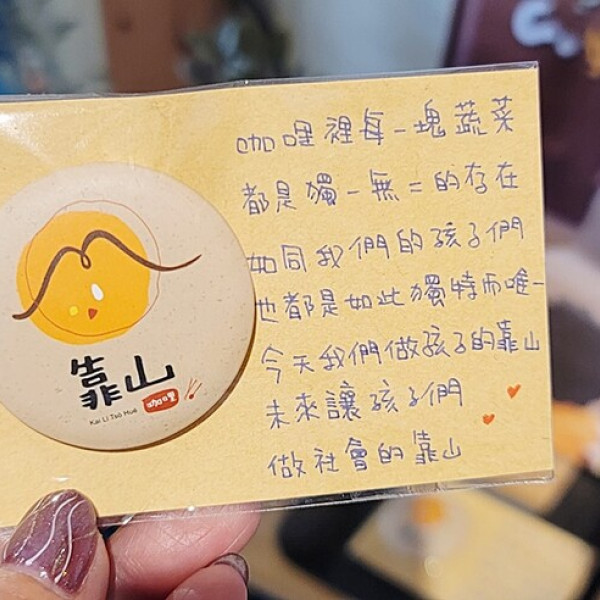 咖哩裡每一塊蔬菜
都是獨一無二的存在
如同我們的孩子們
也都是如此獨特而唯一
今天我們做孩子的靠山
未來讓孩子們
做社會的靠山
靠山
咖哩